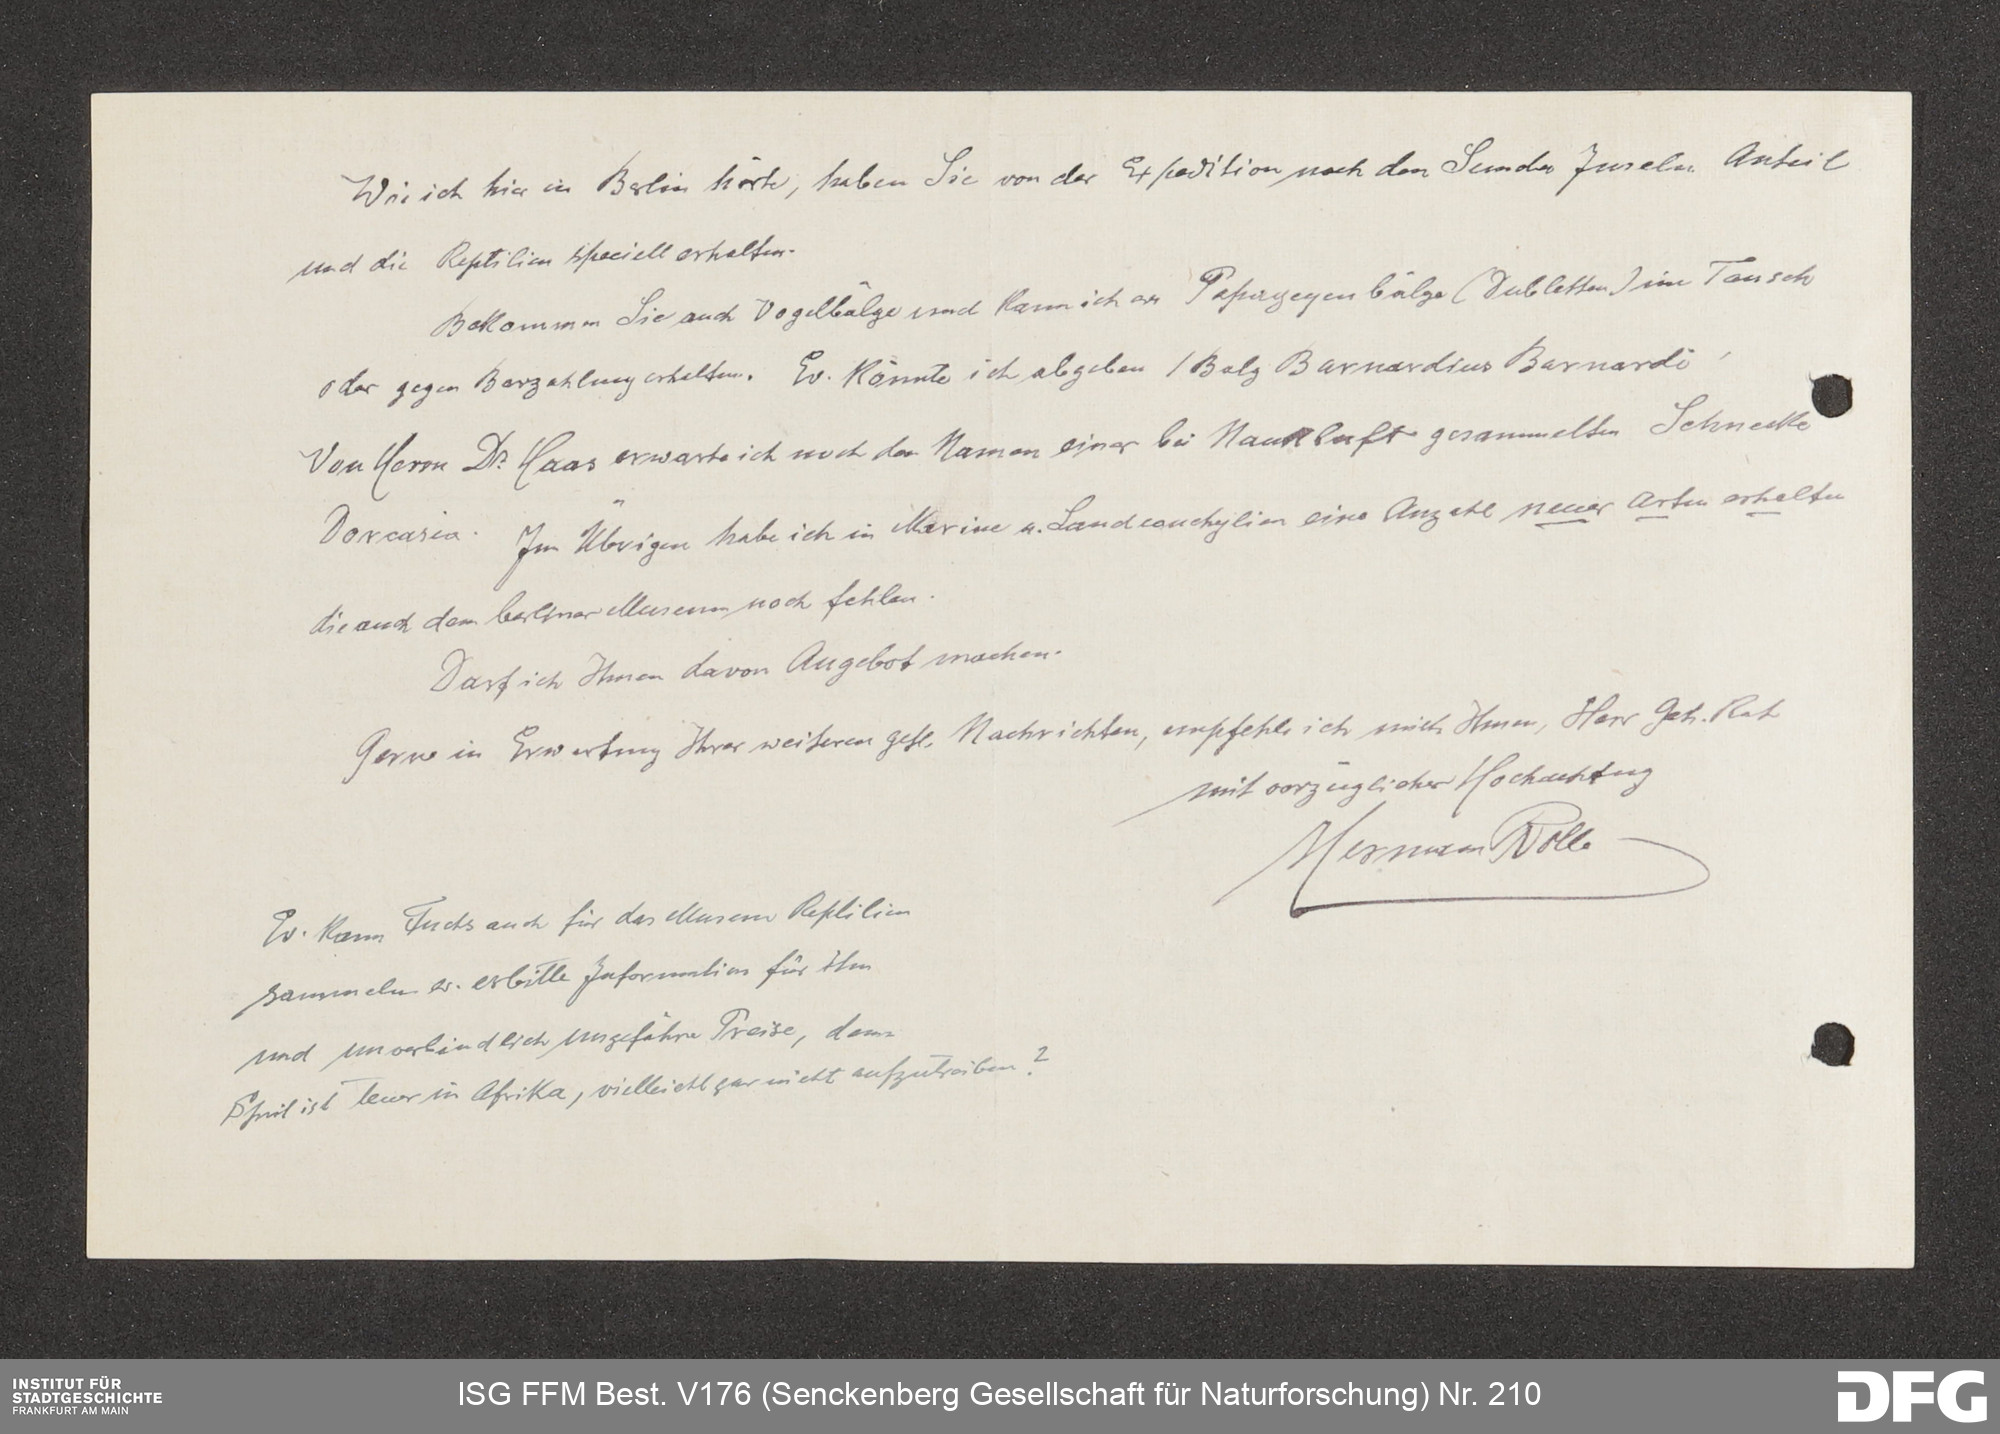 Wie ich hier in Berlin hörte, haben Sie von der Expedition nach den Sunda Inseln Anteil
und die Reptilien speciell erhalten.
Bekommen Sie auch Vogelbälge und kann ich ev Papageyenbälge (Dubletten) im Tausch
oder gegen Barzahlung erhalten. Ev. könnte ich abgeben 1 Balg Barnardius Barnardi
Von Herrn Dr. Haas erwarte ich noch den Namen einer bei Naukluft gesammelten Schnecke
Dorcasia. Im Übrigen habe ich in Marine u. Landconchylien eine Anzahl neuer Arten erhalten
die auch dem berliner Museum noch fehlen.
Darf ich Ihnen davon Angebot machen.
Gerne in Erwartung Ihrer weiteren gefl. Nachrichten, empfehle ich mich Ihnen, Herr Geh. Rat
mit vorzüglicher Hochachtung
Hermann Rolle
Ev. kann Fuchs auch für das Museum Reptilien
sammeln er. erbitte Information für ihn
und unverbindlich ungefähre Preise, denn
Sprit ist teuer in Afrika, vielleicht gar nicht aufzutreiben?
INSTITUT FÜR
STADTGESCHICHTE
FRANKFURT AM MAIN
ISG FFM Best. V176 (Senckenberg Gesellschaft für Naturforschung) Nr. 210
DFG